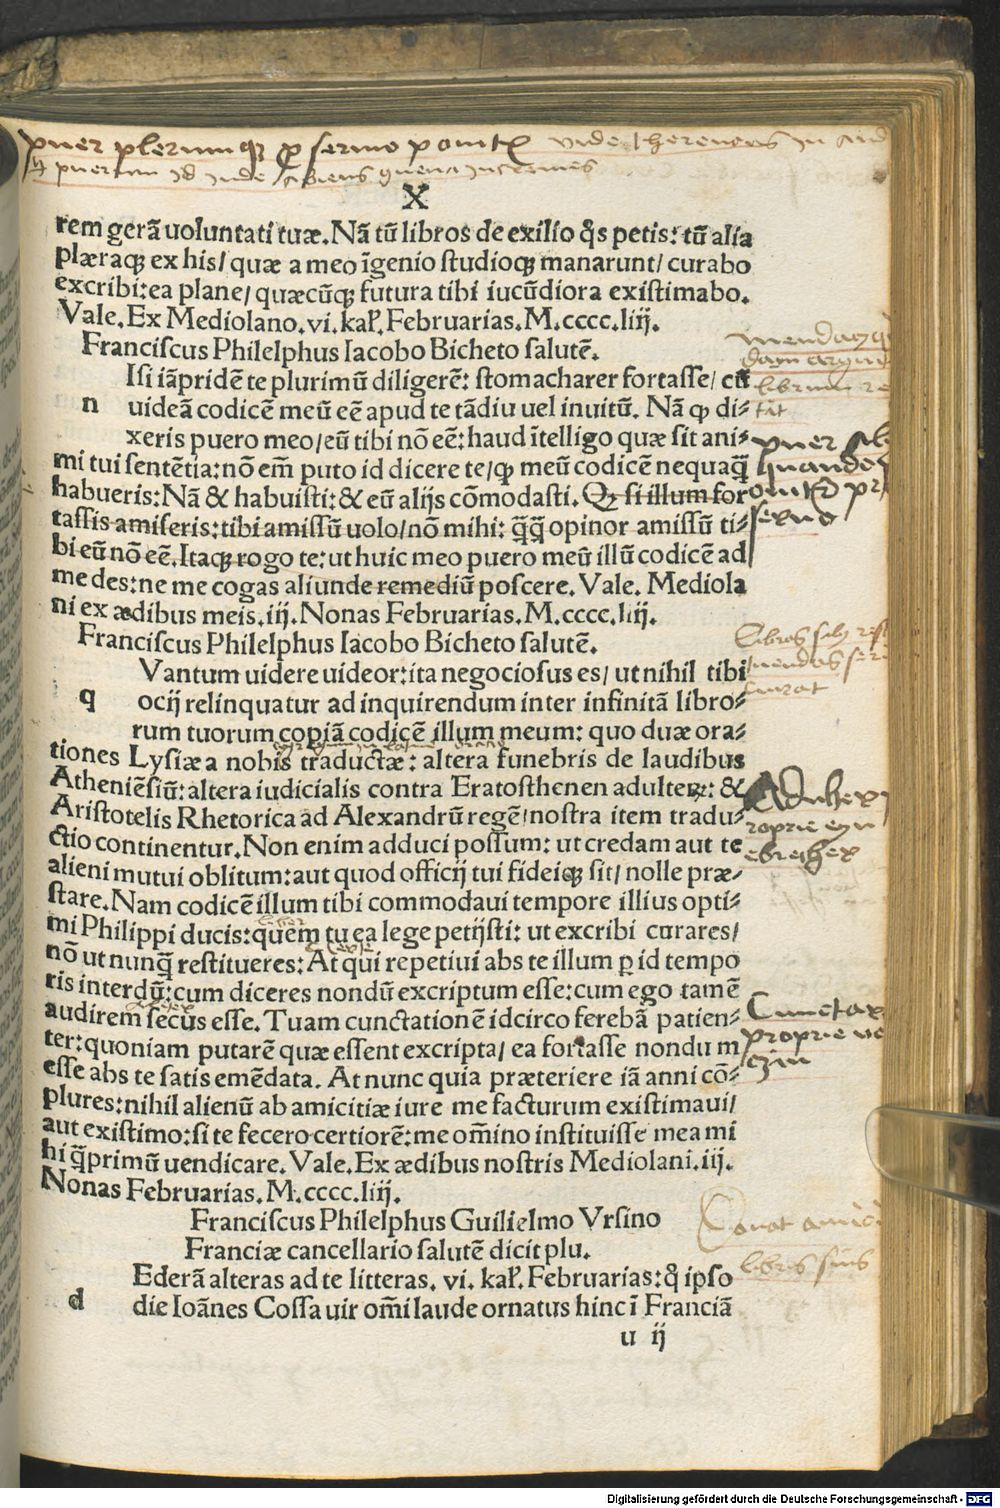 puer plerumq; p sermo ponit vide therencius in
puerum id inde abiens
X
rem gerā uoluntati tuæ. Nā tū libros de exilio q̊s petis: tū alia
plæraq; ex his/ quæ a meo īgenio studioq; manarunt/ curabo
excribi: ea plane/ quæcūq; futura tibi iucūdiora existimabo.
Vale. Ex Mediolano. vi. kal. Februarias. M. cccc. liij.
Franciscus Philelphus Iacobo Bicheto salutē.
Isi iāpridē te plurimū diligerē: stomacharer fortasse/ cū
n uideā codicē meū eē apud te tādiu uel inuitū. Nā q̃ di⸗
xeris puero meo/ eū tibi nō eē: haud ītelligo quæ sit ani⸗
mi tui sentētia: nō em̄ puto id dicere te/ q̃ meū codicē nequaq̃
habueris: Nā & habuisti: & eū alijs cōmodasti. Q; si illum for
tassis amiseris: tibi amissū uolo/ nō mihi: q̃q̃ opinor amissū ti⸗
bi eū nō eē. Itaq; rogo te: ut huic meo puero meū illū codicē ad
me des: ne me cogas aliunde remediū poscere. Vale. Mediola
ni ex ædibus meis. iij. Nonas Februarias. M. cccc. liij.
Franciscus Philelphus Iacobo Bicheto salutē.
Vantum uidere uideor: ita negociosus es/ ut nihil tibi
q ocij relinquatur ad inquirendum inter infinitā libro⸗
rum tuorum copiā codicē illum meum: quo duæ ora⸗
tiones Lysiæ a nobis traductæ: altera funebris de laudibus
Atheniēsiū: altera iudicialis contra Eratosthenen adulteꝝ: &
Aristotelis Rhetorica ad Alexandrū regē/ nostra item tradu⸗
ctio continentur. Non enim adduci possum: ut credam aut te
alieni mutui oblitum: aut quod officij tui fideiq; sit/ nolle præ⸗
stare. Nam codicē illum tibi commodaui tempore illius opti⸗
mi Philippi ducis: quem tu ea lege petijsti: ut excribi curares/
nō ut nunq̃ restitueres: At qui repetiui abs te illum ꝑ id tempo
ris interdū: cum diceres nondū excriptum esse: cum ego tamē
audirem secus esse. Tuam cunctationē idcirco ferebā patien⸗
ter: quoniam putarē quæ essent excripta/ ea fortasse nondum
esse abs te satis emēdata. At nunc quia præteriere iā anni cō⸗
plures: nihil alienū ab amicitiæ iure me facturum existimaui/
aut existimo: si te fecero certiorē: me om̄ino instituisse mea mi
hi q̃primū uendicare. Vale. Ex ædibus nostris Mediolani. iij.
Nonas Februarias. M. cccc. liij.
Franciscus Philelphus Guilielmo Vrsino
Franciæ cancellario salutē dicit plu.
Ederā alteras ad te litteras. vi. kal. Februarias: q̊ ipso
d die Ioānes Cossa uir om̄i laude ornatus hinc ī Franciā
u ij
librum re
tat
puer
libros
curat
Adulter
proprie
Cunctar
proprie
libros suus
Digitalisierung gefördert durch die Deutsche Forschungsgemeinschaft - DFG